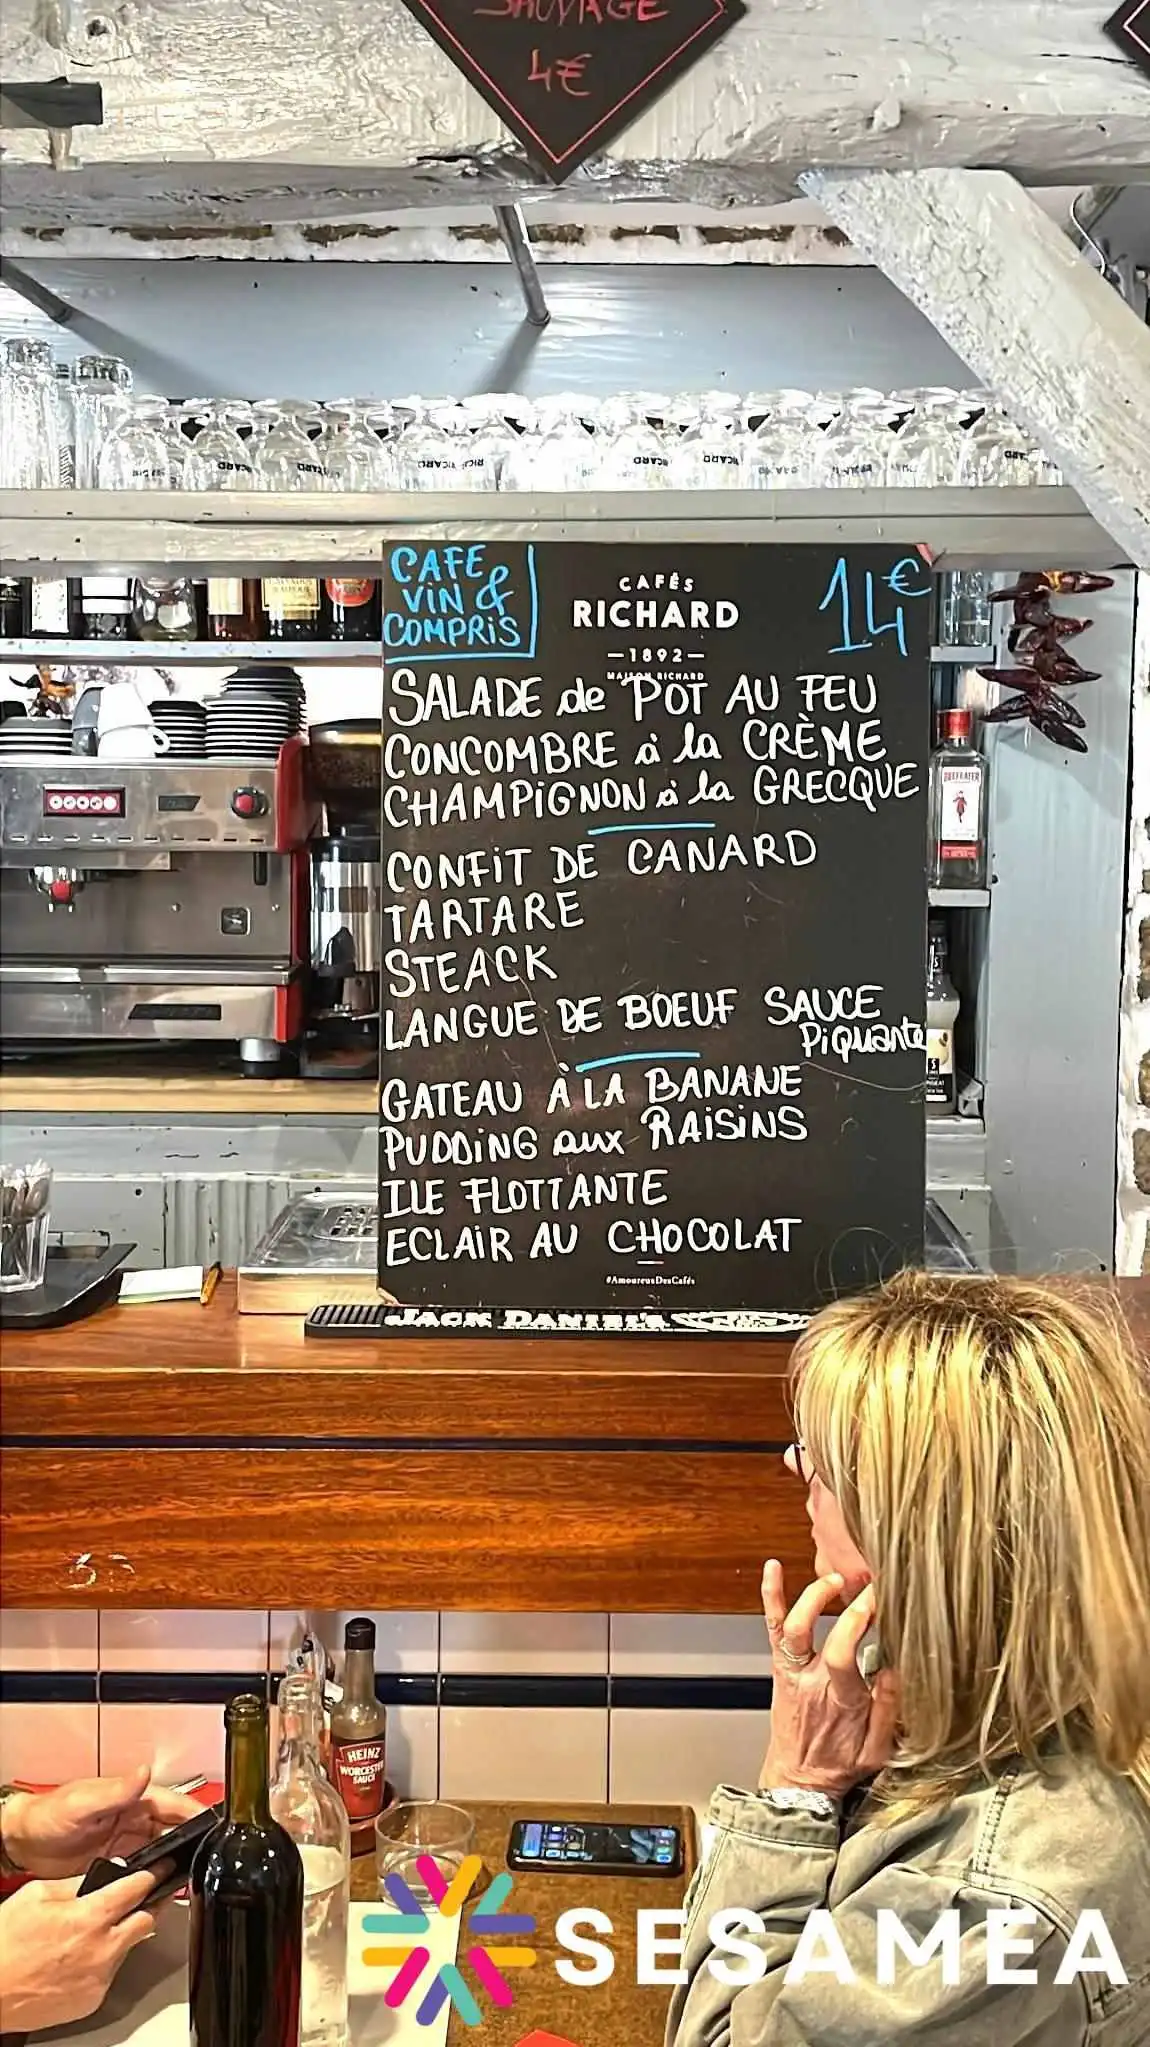 SAUVAGE
4€
CAFE
& VIN
COMPRIS
CAFÉS
RICHARD
—1892—
MAISON RICHARD
14€
SALADE de POT AU FEU
CONCOMBRE à la CRÈME
CHAMPIGNON à la GRECQUE
CONFIT DE CANARD
TARTARE
STEACK
LANGUE DE BOEUF SAUCE
Piquante
GATEAU À LA BANANE
PUDDING aux RAISINS
ILE FLOTTANTE
ECLAIR AU CHOCOLAT
#AmoureuxDesCafés
BEEFEATER
JACK DANIEL'S
HEINZ
WORCESTER
SAUCE
SESAMEA